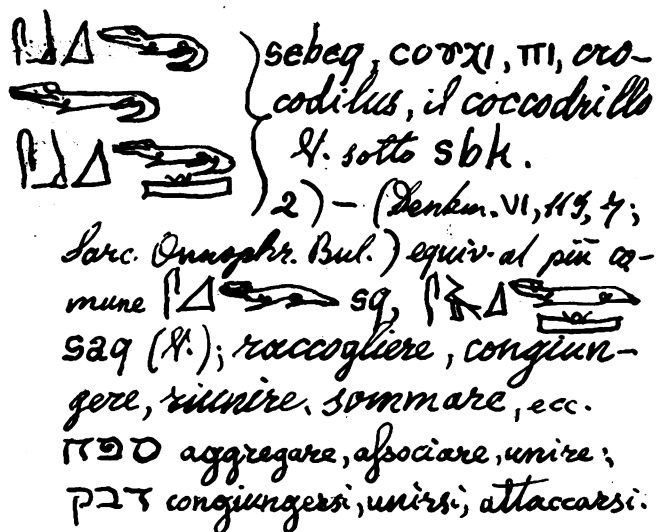 sebeq, ⲥⲟⲩⲭⲓ, ⲡⲓ, cro-
codilus, il coccodrillo
V. sotto sbk.
2) – (Denkm. VI, 119, 7;
Sarc. Onnophr. Bul.) equiv. al più co-
mune sq,
saq (V.); raccogliere, congiun-
gere, riunire, sommare, ecc.
ספח aggregare, aſsociare, unire;
דבק congiungersi, unirsi, attaccarsi.